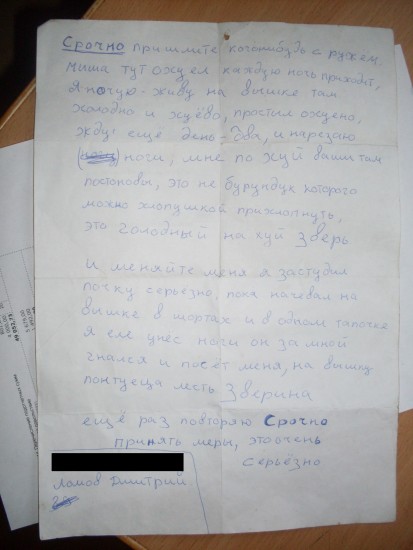 Срочно пришлите когонибудь с ружем.
Миша тут охуел каждую ночь приходит,
Я ночую-живу на вышке там
холодно и хуёво, простыл охуено,
жду еще день-два, и нарезаю
ноги, мне по хуй ваши там
постоновы, это не бурундук которого
можно хлопушкой прихлопнуть,
это голодный на хуй зверь
И меняйте меня я застудил
почку серьезно, пока начевал на
вышке в шортах и в одном тапочке
Я еле унес ноги он за мной
гнался и посёт меня, на вышку
понтуеца лесть Зверина
ещё раз повторяю Срочно
принять меры, это очень
серьёзно
Ломов Дмитрий.